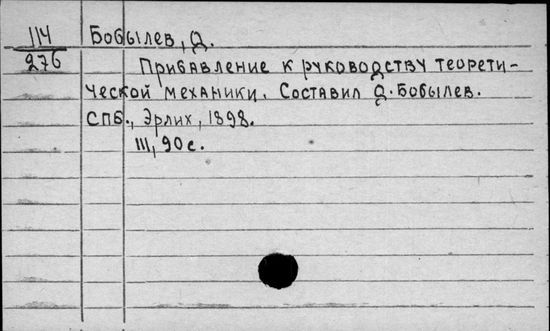 114 Бобылев, Д.
276 Прибавление к руководству теорети-
ческой механики. Составил Д. Бобылев.
СПб., Эрлих, 1898.
III, 90 с.